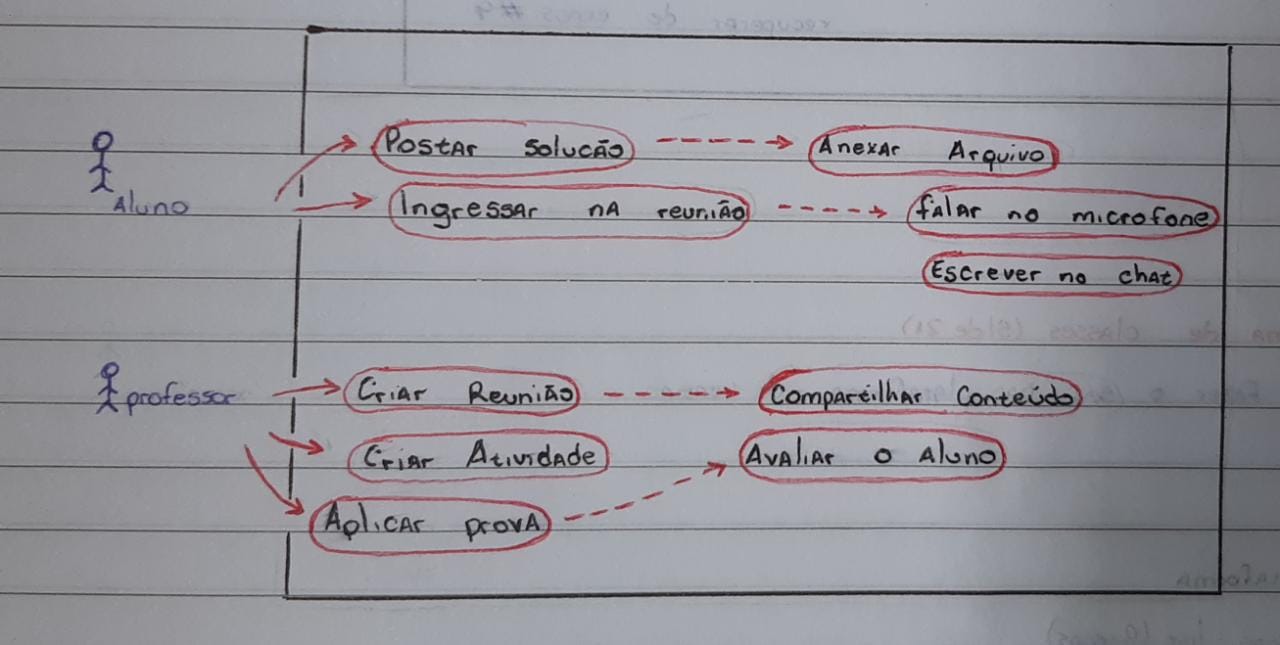 recuperar de erros #4
Postar Solucão
Anexar Arquivo
Aluno
Ingressar na reunião
falar no microfone
Escrever no chat
de classes (Slide 21)
professor
Criar Reunião
Compartilhar Conteúdo
Criar Atividade
Avaliar o Aluno
Aplicar prova